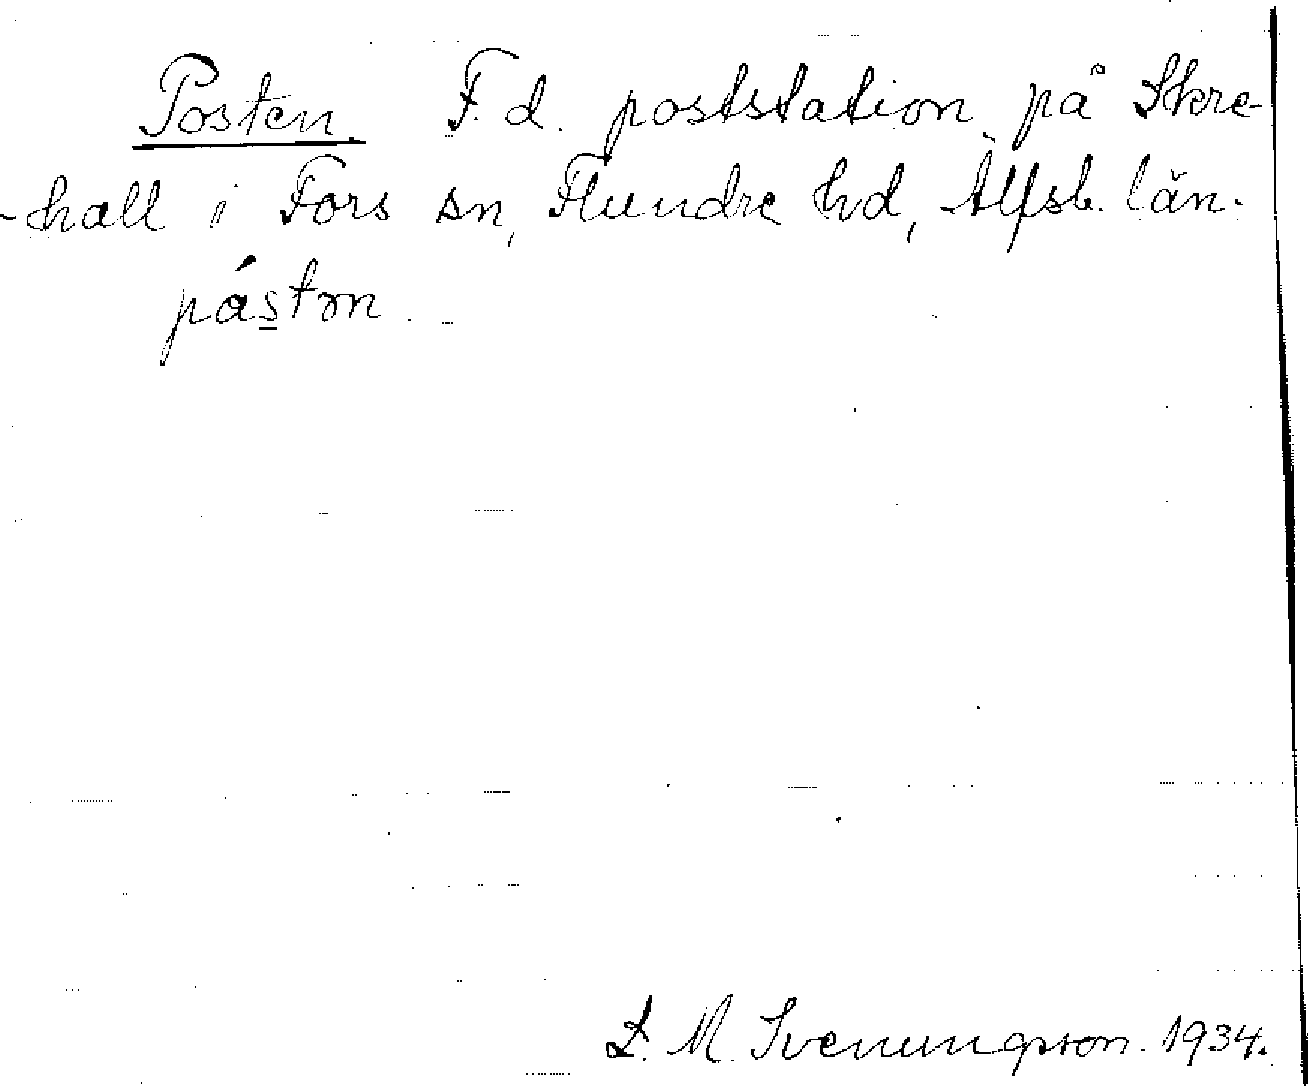 Posten. F.d. poststation på Skre-
-hall i Fors sn, Flundre hd, Älfsb. län.
påston.
L. M. Svenungson. 1934.